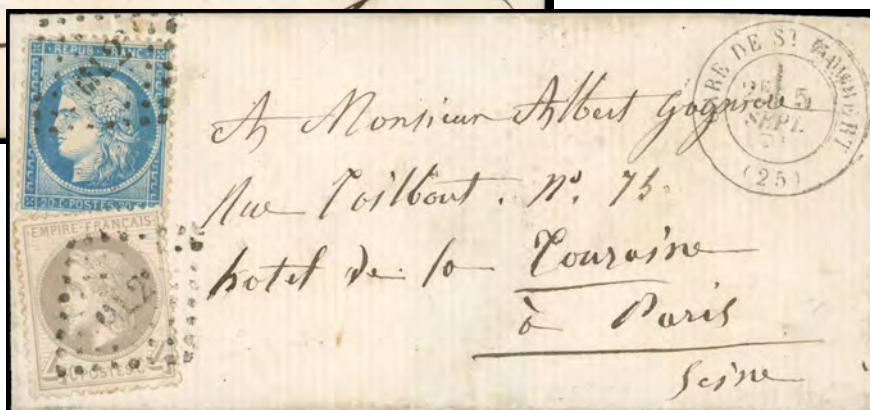 REPUB · FRANC
20 · C · POSTES · 20 · C
EMPIRE · FRANCAIS
4 POSTES 4
RE DE ST
2E
5
SEPT.
(25)
A Monsieur Albert
Rue Taitbout. N°. 75.
hotel de la Touraine
à Paris
Seine